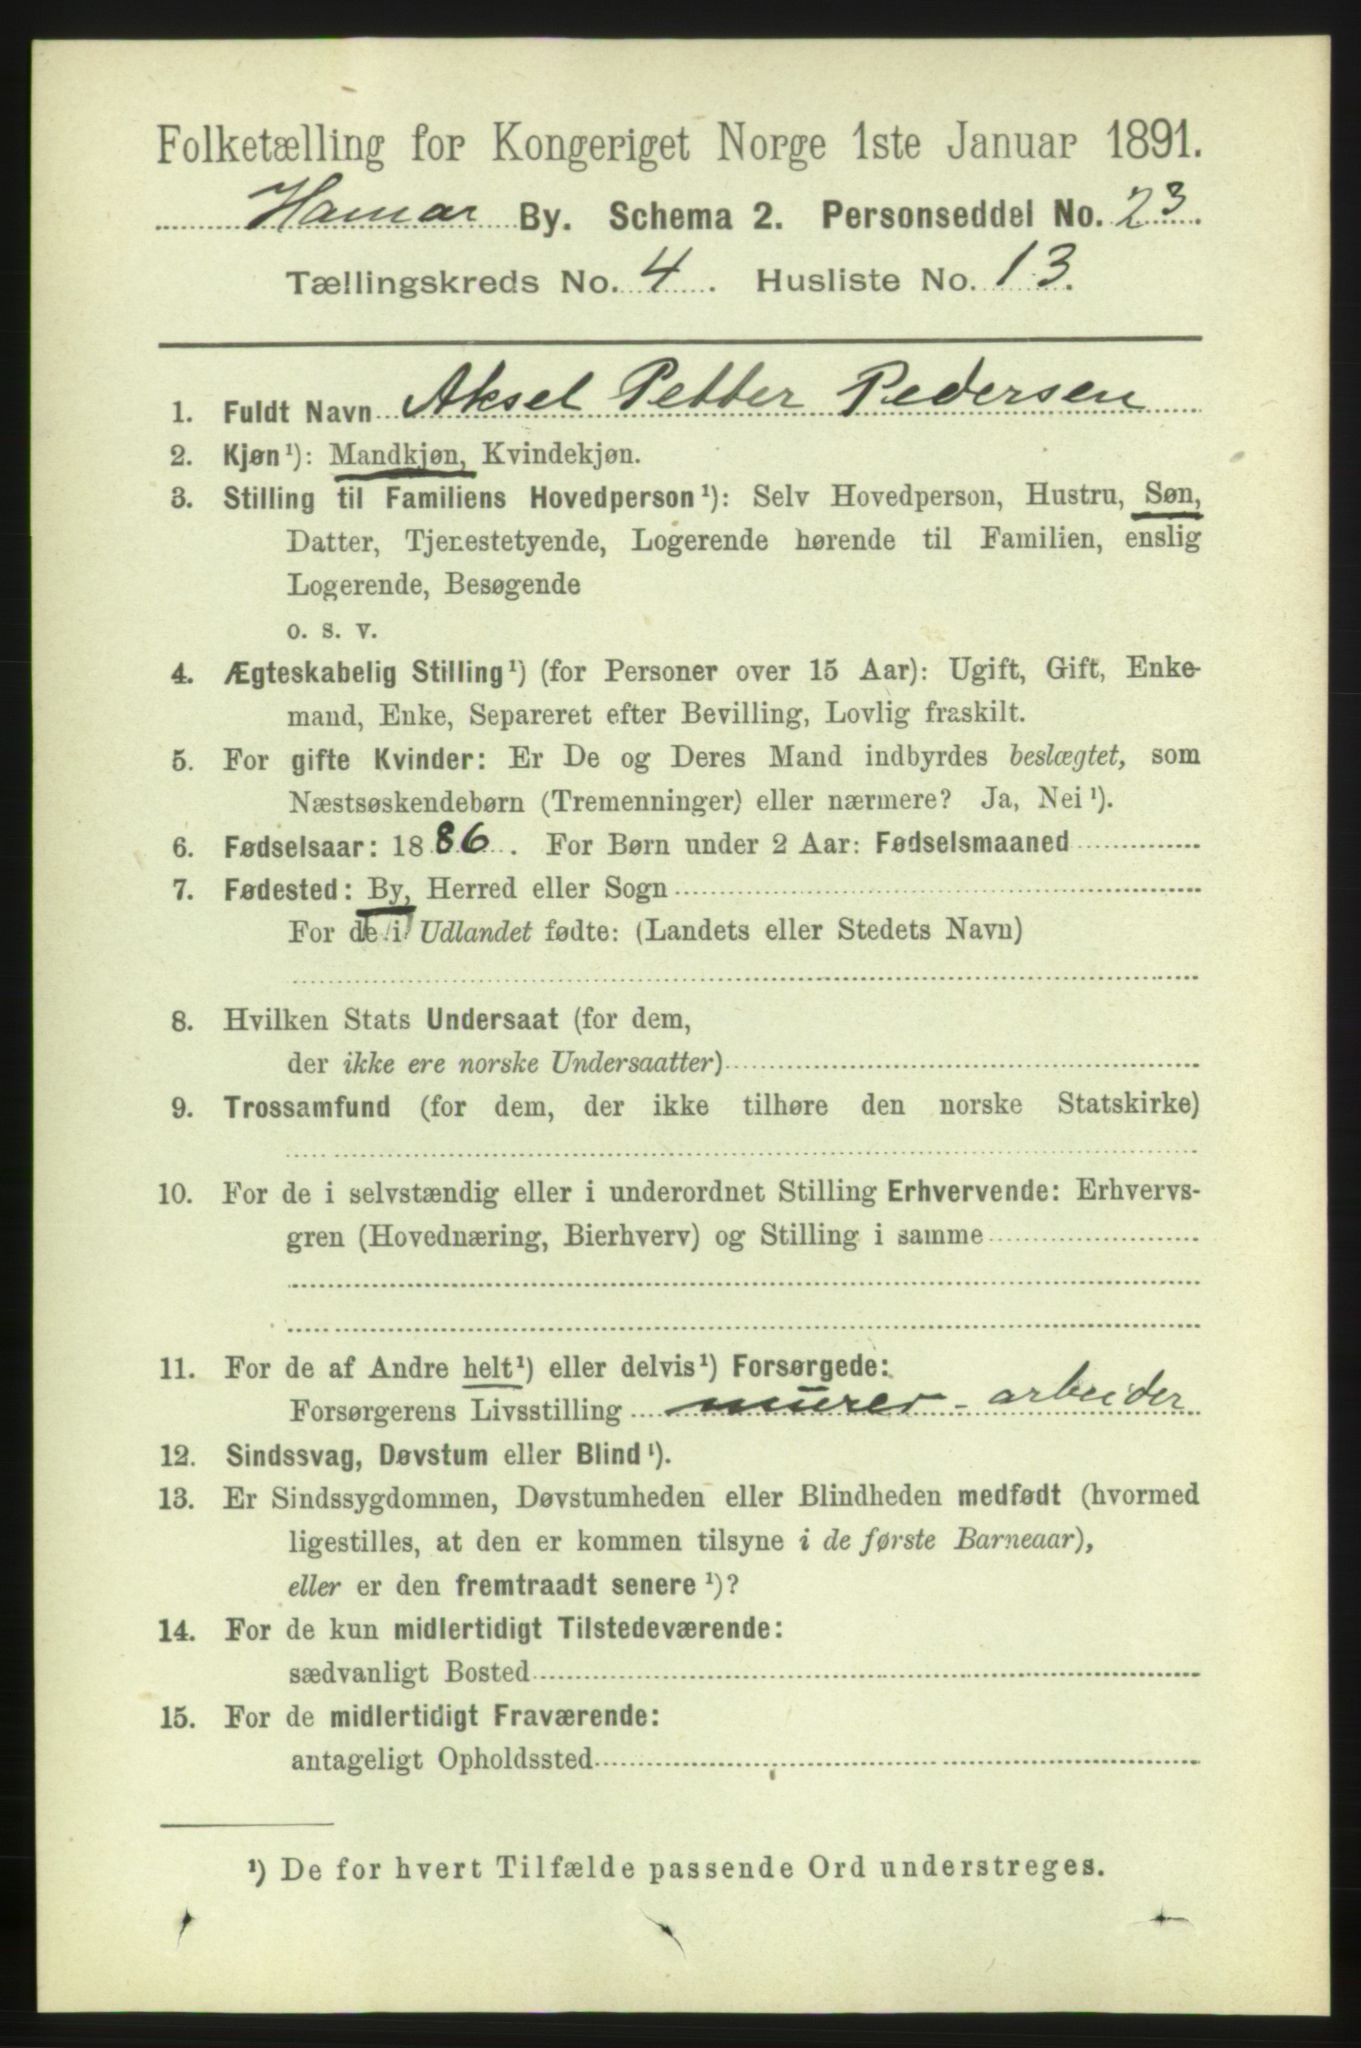 Folketælling for Kongeriget Norge 1ste Januar 1891.
Hamar By. Schema 2. Personseddel No. 23.
Tællingskreds No. 4. Husliste No. 13.
1. Fuldt Navn Aksel Petter Pedersen
2. Kjøn¹): Mandkjøn, Kvindekjøn.
3. Stilling til Familiens Hovedperson¹): Selv Hovedperson, Hustru, Søn,
Datter, Tjenestetyende, Logerende hørende til Familien, enslig
Logerende, Besøgende
o. s. v.
4. Ægteskabelig Stilling¹) (for Personer over 15 Aar): Ugift, Gift, Enke-
mand, Enke, Separeret efter Bevilling, Lovlig fraskilt.
5. For gifte Kvinder: Er De og Deres Mand indbyrdes beslægtet, som
Næstsøskendebørn (Tremenninger) eller nærmere? Ja, Nei¹).
6. Fødselsaar: 1886. For Børn under 2 Aar: Fødselsmaaned
7. Fødested: By, Herred eller Sogn
For de i Udlandet fødte: (Landets eller Stedets Navn)
8. Hvilken Stats Undersaat (for dem,
der ikke ere norske Undersaatter)
9. Trossamfund (for dem, der ikke tilhøre den norske Statskirke)
10. For de i selvstændig eller i underordnet Stilling Erhvervende: Erhvervs-
gren (Hovednæring, Bierhverv) og Stilling i samme
11. For de af Andre helt¹) eller delvis¹) Forsørgede:
Forsørgerens Livsstilling murer - arbeider
12. Sindssvag, Døvstum eller Blind¹).
13. Er Sindssygdommen, Døvstumheden eller Blindheden medfødt (hvormed
ligestilles, at den er kommen tilsyne i de første Barneaar),
eller er den fremtraadt senere¹)?
14. For de kun midlertidigt Tilstedeværende:
sædvanligt Bosted
15. For de midlertidigt Fraværende:
antageligt Opholdssted
¹) De for hvert Tilfælde passende Ord understreges.